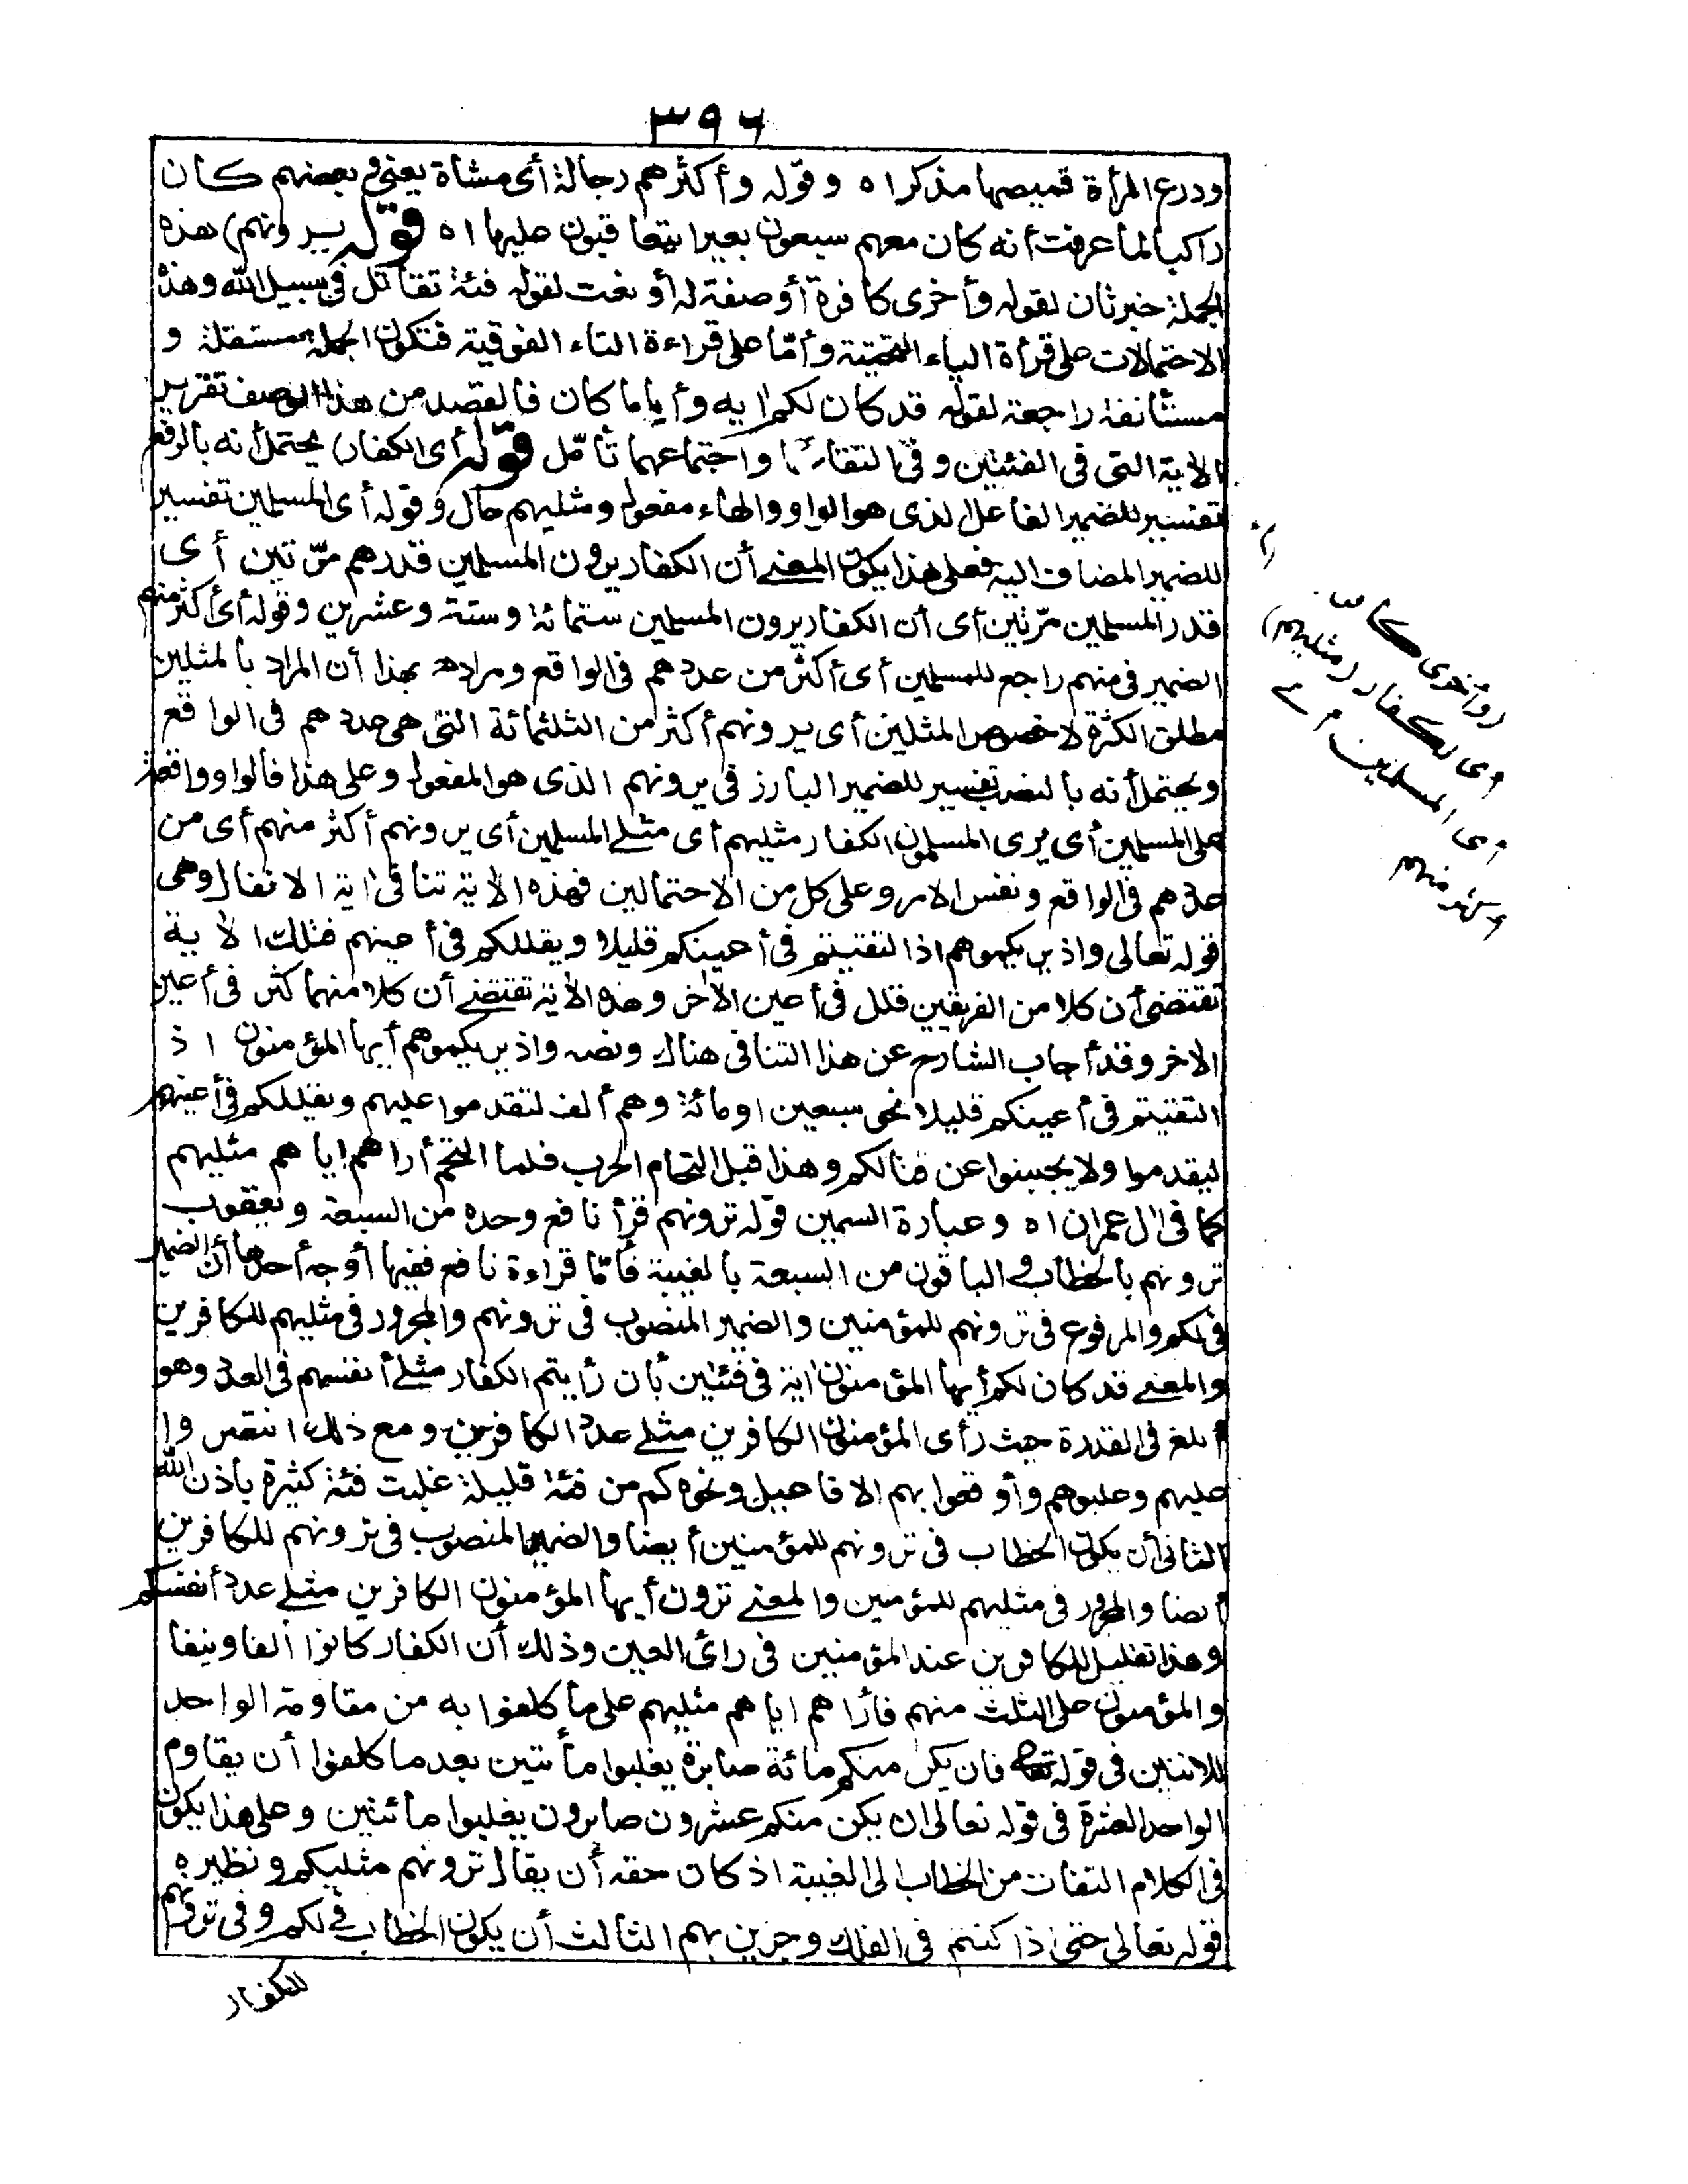 ٣٩٦
ودرع المرأة قميصها مذكر ا ه وقوله وأكثرهم رجالة أى مشاة يعنى وبعضهم كان
راكبا لما عرفت أنه كان معهم سبعون بعيرا يتعاقبون عليها ا ه قوله يرونهم) هذه
الجملة خبر ثان لقوله وأخرى كافرة أو صفة له أو نعت لقوله فئة تقاتل فى سبيل الله وهذه
الاحتمالات على قرأة الياء التحتية وأمّا على قراءة التاء الفوقية فتكون الجملة مستقلة و
مستأنفة راجعة لقوله قد كان لكم اية وأياما كان فالقصد من هذا الوصف تقرير
الأية التى فى الفئتين وفى التقائهما واجتماعهما تأمّل قوله أى الكفار) يحتمل أنه بالرفع
تفسير للضمير الفاعل الذى هو الواو والهاء مفعول ومثليهم حال وقوله أى المسلمين تفسير
للضمير المضاف اليه فعلى هذا يكون المعنى أن الكفار يرون المسلمين قدرهم مرّتين أى
قدر المسلمين مرّتين أى أن الكفار يرون المسلمين ستمائة وستة وعشرين وقوله أى أكثر منهم
الضمير فى منهم راجع للمسلمين أى أكثر من عددهم فى الواقع ومراده بهذا أن المراد بالمثلين
مطلق الكثرة لا خصوص المثلين أى يرونهم أكثر من الثلثمائة التى هى عددهم فى الواقع
ويحتمل أنه بالنصب تفسير للضمير البارز فى يرونهم الذى هو المفعول وعلى هذا فالواو واقعة
على المسلمين أى يرى المسلمون الكفار مثليهم أى مثلى المسلمين أى يرونهم أكثر منهم أى من
عددهم فى الواقع ونفس الامر وعلى كل من الاحتمالين فهذه الأية تنافى اية الانفال وهى
قوله تعالى واذ يريكموهم اذا لتقيتم فى أعينكم قليلا ويقللكم فى أعينهم فتلك الأية
تقتضى أن كلا من الفريقين قلل فى أعين الأخر وهذه الأية تقتضى أن كلا منهما كثر فى أعين
الأخر وقد أجاب الشارح عن هذا التنافى هناك ونصه واذ يريكموهم أيها المؤمنون اذ
التقيتم فى أعينكم قليلا نحو سبعين او مائة وهم ألف لتقدموا عليهم ويقللكم فى أعينهم
ليقدموا ولا يجبنوا عن قتالكم وهذا قبل التحام الحرب فلما التحم أراهم اياهم مثليهم
كما فى ال عمران ا ه وعبارة السمين قوله ترونهم قرأ نافع وحده من السبعة ويعقوب
ترونهم بالخطاب والباقون من السبعة بالغيبة فأمّا قراءة نافع ففيها أوجه أحدها أن الضمير
فى لكم والمرفوع فى ترونهم للمؤمنين والضمير المنصوب فى ترونهم والمجرور فى مثليهم للكافرين
والمعنى قد كان لكم أيها المؤمنون اية فى فئتين بأن رأيتم الكفار مثلى أنفسهم فى العدد وهو
أبلغ فى القدرة حيث رأى المؤمنون الكافرين مثلى عدد الكافرين ومع ذلك انتصروا
عليهم وغلبوهم وأوقعوا بهم الافاعيل ونحوه كم من فئة قليلة غلبت فئة كثيرة باذن الله
الثانى أن يكون الخطاب فى ترونهم للمؤمنين أيضا والضمير المنصوب فى ترونهم للكافرين
أيضا والمجرور فى مثليهم للمؤمنين والمعنى ترون أيها المؤمنون الكافرين مثلى عدد أنفسكم
وهذا تقليل للكافرين عند المؤمنين فى رائ العين وذلك أن الكفار كانوا ألفا ونيفا
والمؤمنون على الثلث منهم فأراهم اياهم مثليهم على ما كلفوا به من مقاومة الواحد
للاثنين فى قوله تعه فان يكن منكم مائة صابرة يغلبوا مأتين بعد ما كلفوا أن يقاوم
الواحد العشرة فى قوله تعالى ان يكن منكم عشرون صابرون يغلبوا مائتين وعلى هذا يكون
فى الكلام التفات من الخطاب الى الغيبة اذ كان حقه أن يقال ترونهم مثليكم ونظيره
قوله تعالى حتى اذا كنتم فى الفلك وجرين بهم الثالث أن يكون الخطاب فى لكم وفى ترونهم
للكفار
اى الكفار (مثليهم)
اى المسلمين
اكثر منهم